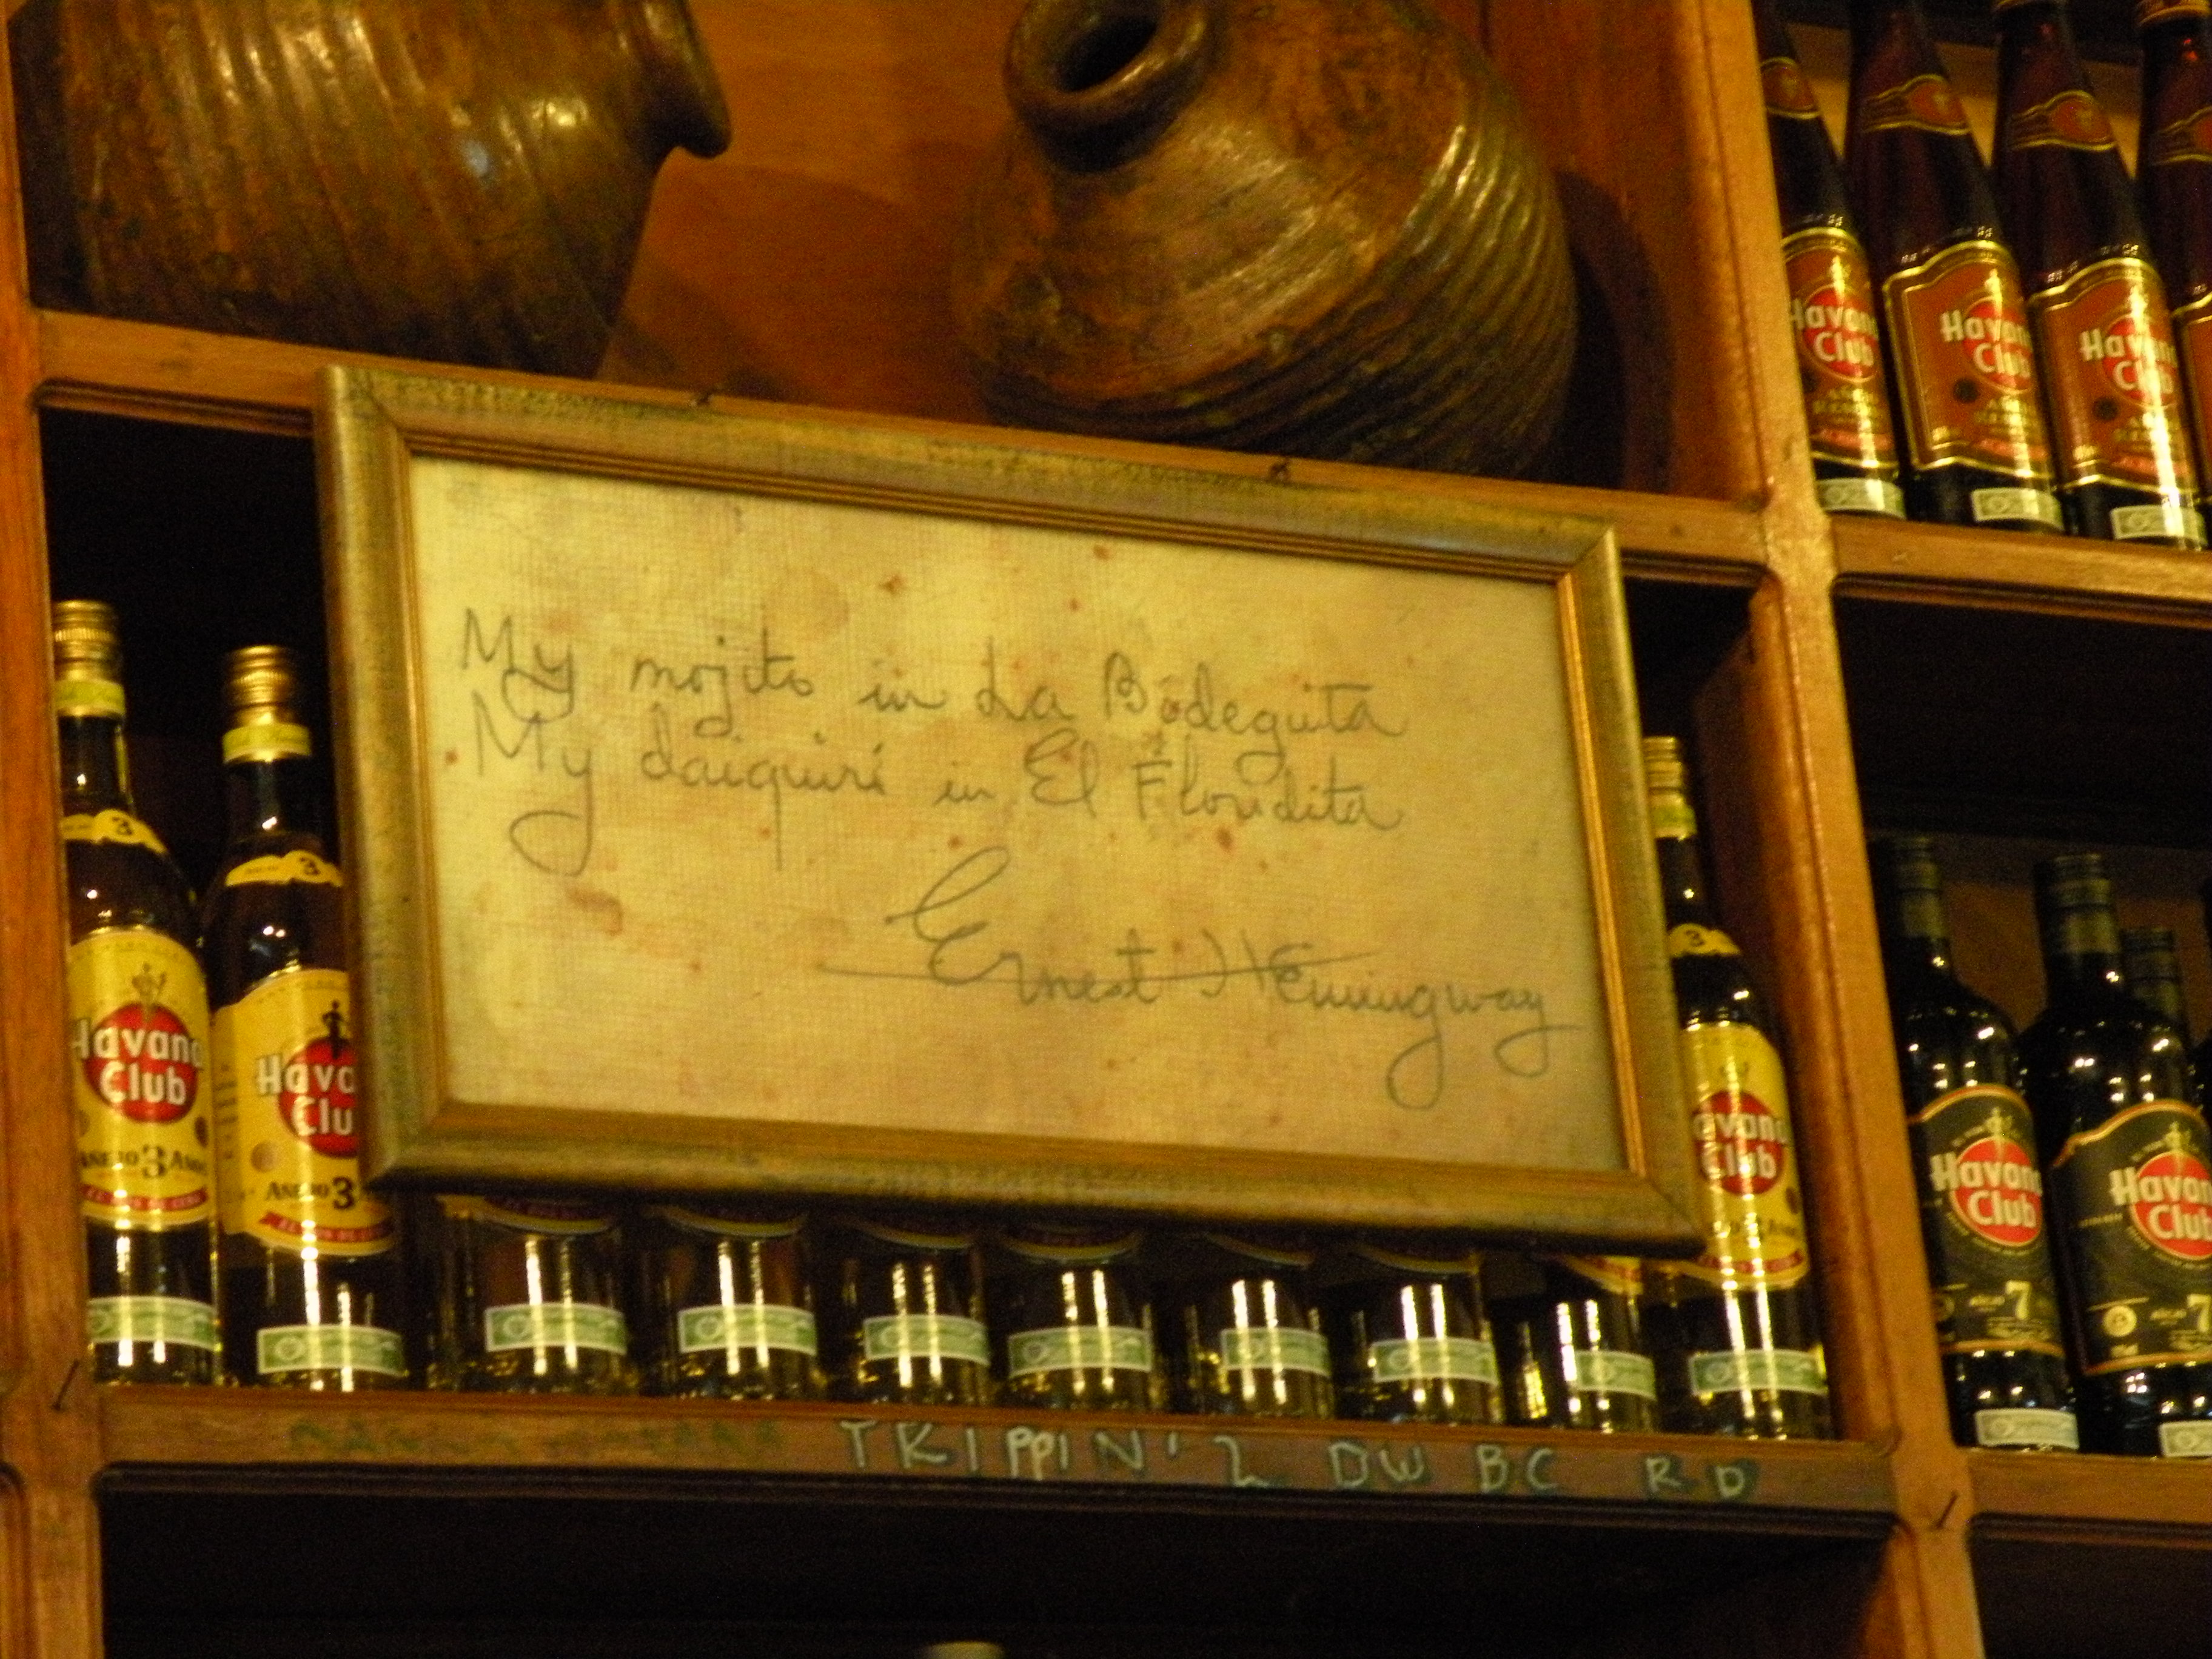 Havana Club
Havana Club
Havana Club
My mojito in La Bodeguita
My daiquirí in El Floridita
Ernest Hemingway
3
3
3
Havana Club
AÑEJO 3 AÑOS
Havana Club
AÑEJO 3
Havana Club
Havana Club
7
Havana Club
7
TRIPPIN' 2 DW BC RD